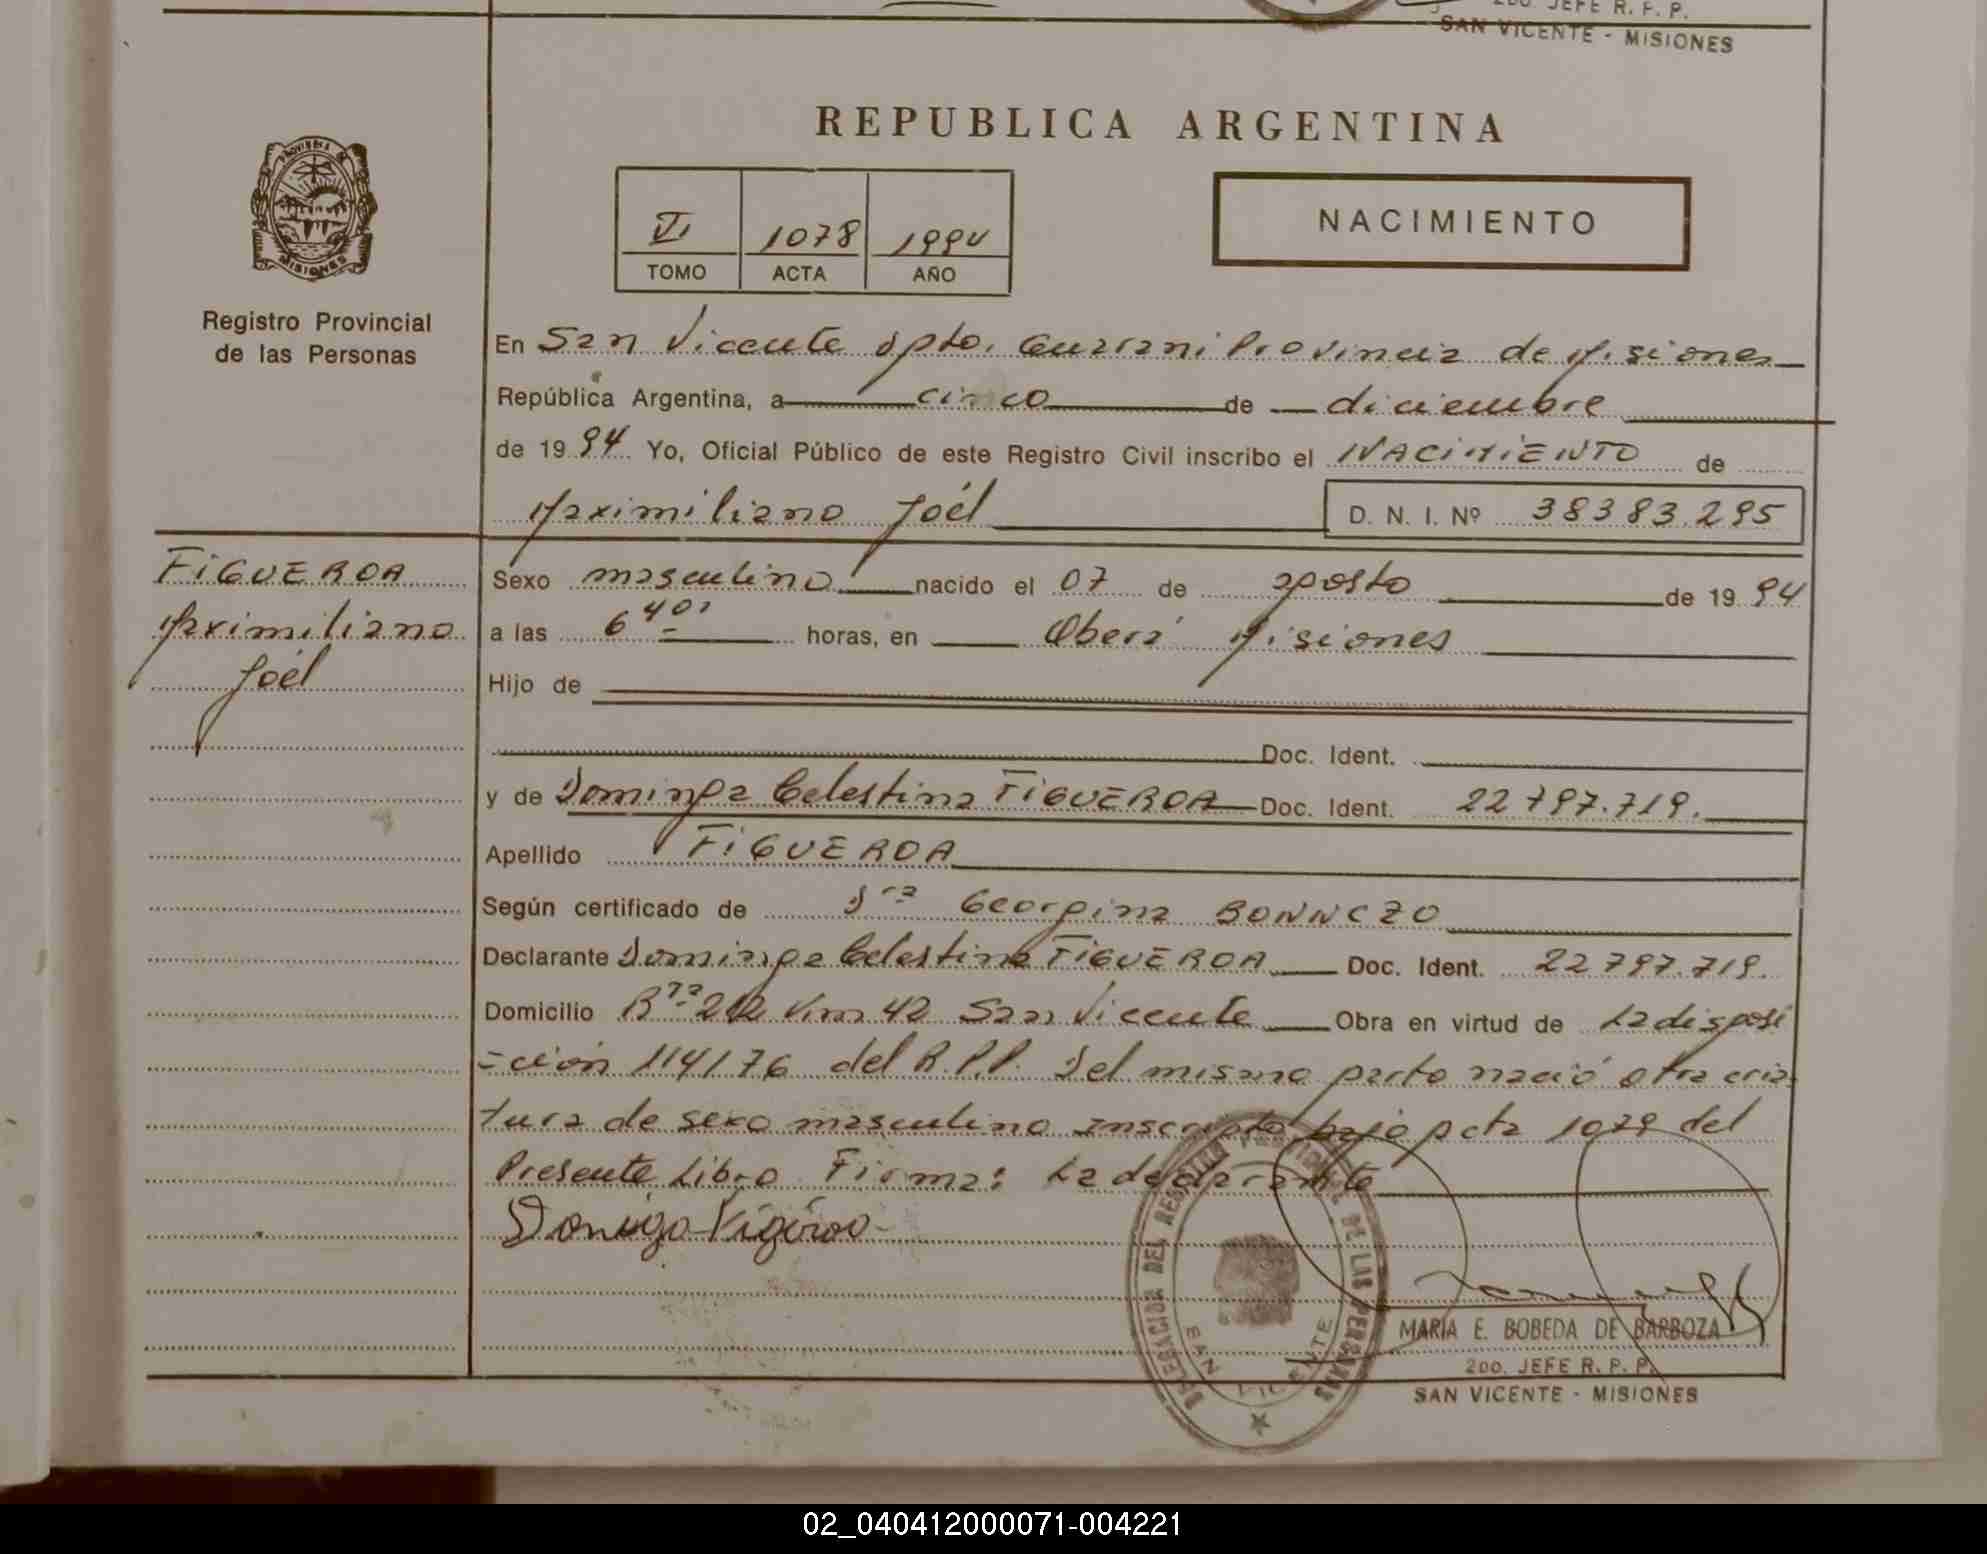 2DO. JEFE R. P. P.
SAN VICENTE - MISIONES
REPUBLICA ARGENTINA
PROVINCIA DE
MISIONES
Registro Provincial
de las Personas
VI 1078 1994
TOMO ACTA AÑO
NACIMIENTO
En San Vicente Dpto. Guarani Provincia de Misiones
República Argentina, a cinco de diciembre
de 1994 Yo, Oficial Público de este Registro Civil inscribo el NACIMIENTO de
Maximiliano Joél D. N. I. Nº 38383.295
FIGUEROA
Maximiliano
Joél
Sexo masculino nacido el 07 de agosto de 1994
a las 6 40' horas, en Oberá Misiones
Hijo de
Doc. Ident.
y de Dominga Celestina FIGUEROA Doc. Ident. 22797.719.
Apellido FIGUEROA
Según certificado de Dra Georgina BONNCZO
Declarante Dominga Celestina FIGUEROA Doc. Ident. 22797.719.
Domicilio Rta 212 Km 42 San Vicente Obra en virtud de La disposi
-ción 114/76 del R.P.P. Del mismo parto nació otra cria-
tura de sexo masculino inscripto bajo acta 1079 del
Presente Libro. Firma: La declarante
DELEGACION DEL REGISTRO PROVINCIAL DE LAS PERSONAS
SAN VICENTE
MARIA E. BOBEDA DE BARBOZA
2DO. JEFE R. P. P.
SAN VICENTE - MISIONES
02_040412000071-004221